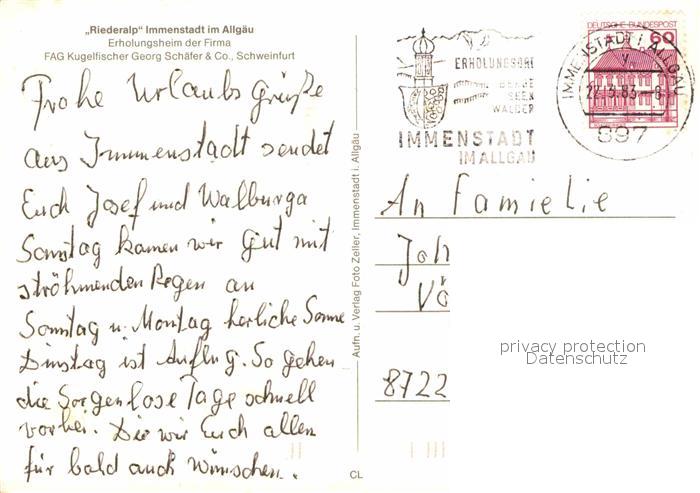 „Riederalp“ Immenstadt im Allgäu
Erholungsheim der Firma
FAG Kugelfischer Georg Schäfer & Co., Schweinfurt
Frohe Urlaubs grüße
aus Immenstadt sendet
Euch Josef und Walburga
Samstag kamen wir gut mit
ströhmenden Regen an
Sonntag u. Montag herliche Sonne
Dinstag ist Ausflug. So gehen
die Sorgenlose Tage schnell
vorbei. Die wir Euch allen
für bald auch wünschen.
Aufn. u. Verlag Foto Zeller, Immenstadt i. Allgäu
CL
ERHOLUNGSORT
BERGE
SEEN
WÄLDER
IMMENSTADT
IM ALLGÄU
DEUTSCHE BUNDESPOST
60
IMMENSTADT I. ALLGÄU
897
An Famielie
Joh
Vö
8722
privacy protection
Datenschutz